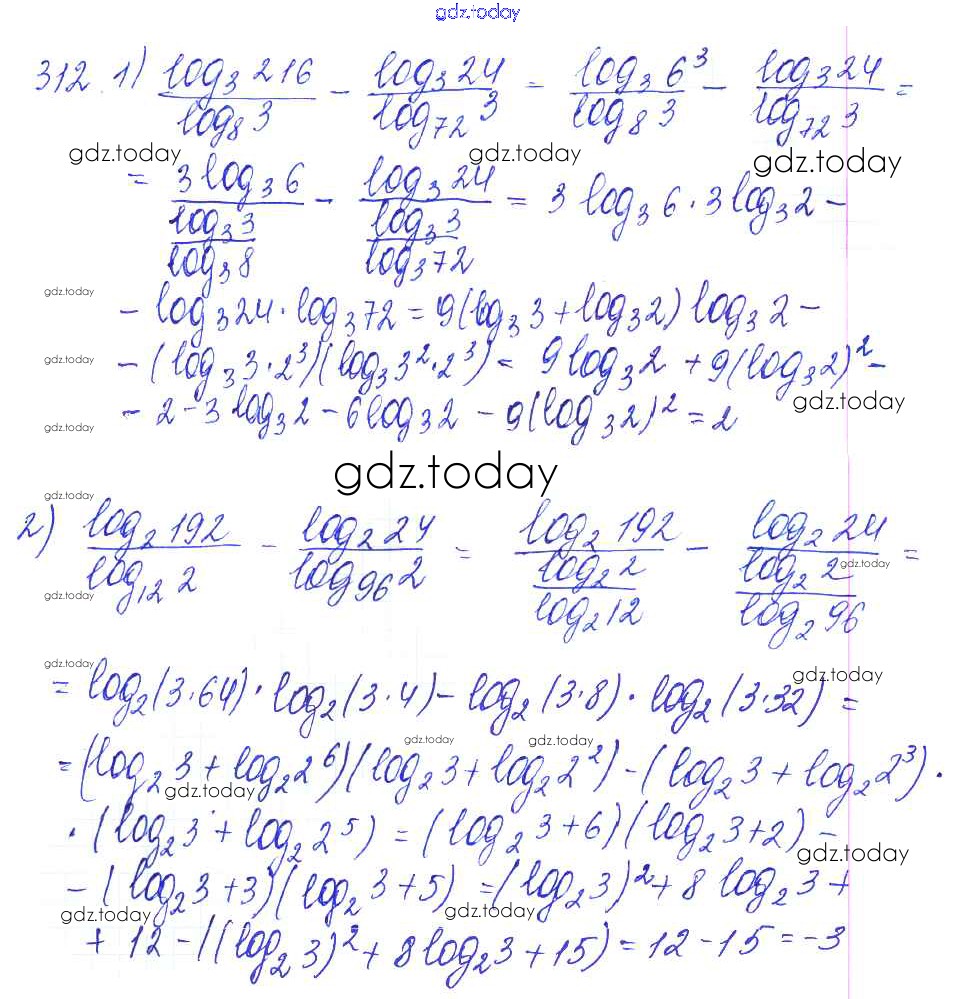 gdz.today
312. 1) log₃216/log₈3 - log₃24/log₇₂3 = log₃6³/log₈3 - log₃24/log₇₂3 =
gdz.today gdz.today gdz.today
= 3log₃6/(log₃3/log₃8) - log₃24/(log₃3/log₃72) = 3log₃6·3log₃2 -
gdz.today
- log₃24·log₃72 = 9(log₃3+log₃2)log₃2 -
gdz.today
- (log₃3·2³)(log₃3²·2³) = 9log₃2 + 9(log₃2)² -
gdz.today
- 2 - 3log₃2 - 6log₃2 - 9(log₃2)² = 2
gdz.today
gdz.today
gdz.today
2) log₂192/log₁₂2 - log₂24/log₉₆2 = log₂192/(log₂2/log₂12) - log₂24/(log₂2/log₂96) =
gdz.today
gdz.today
gdz.today gdz.today
= log₂(3·64)·log₂(3·4) - log₂(3·8)·log₂(3·32) =
gdz.today gdz.today
= (log₂3+log₂2⁶)(log₂3+log₂2²) - (log₂3+log₂2³)·
gdz.today
·(log₂3+log₂2⁵) = (log₂3+6)(log₂3+2) -
gdz.today
- (log₂3+3)(log₂3+5) = (log₂3)² + 8log₂3 +
gdz.today gdz.today
+ 12 - ((log₂3)² + 8log₂3 + 15) = 12 - 15 = -3